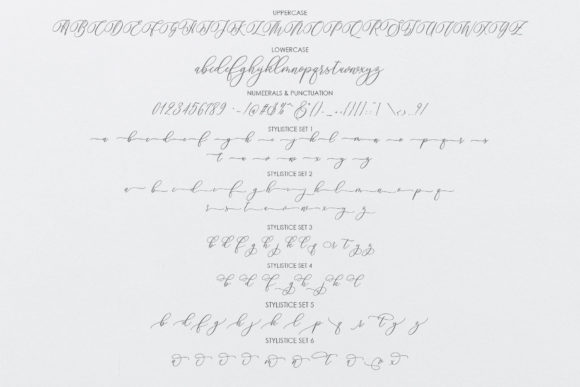 UPPERCASE
ABCDEFGHIJKLMNOPQRSTUVWXYZ
LOWERCASE
abcdefghijklmnopqrstuvwxyz
NUMEERALS & PUNCTUATION
0123456789
STYLISTICE SET 1
a b c d e f g h i j k l m n o p q r s
t u v w x y z
STYLISTICE SET 2
a b c d e f g h i j k l m n o p q
r s t u v w x y z
STYLISTICE SET 3
b d f g h j k l q r t z z
STYLISTICE SET 4
b d f g h j k l
STYLISTICE SET 5
b d f g h j k l p q s t y z
STYLISTICE SET 6